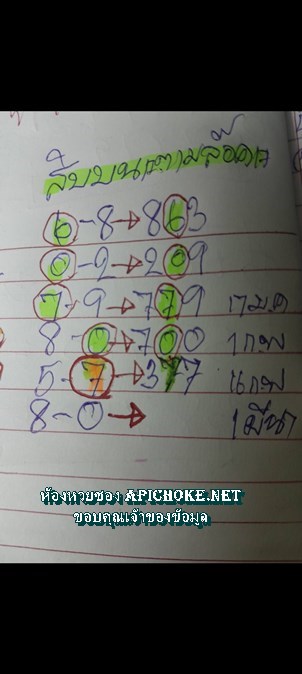 สิบบนตามล๊อคเว
6-8→863
0-2→209
7-9→779 17ม.ค
8-0→700 1กพ
5-7→377 16กพ
8-0→ 1มีนา
ห้องหวยซอง APICHOKE.NET
ขอบคุณเจ้าของข้อมูล